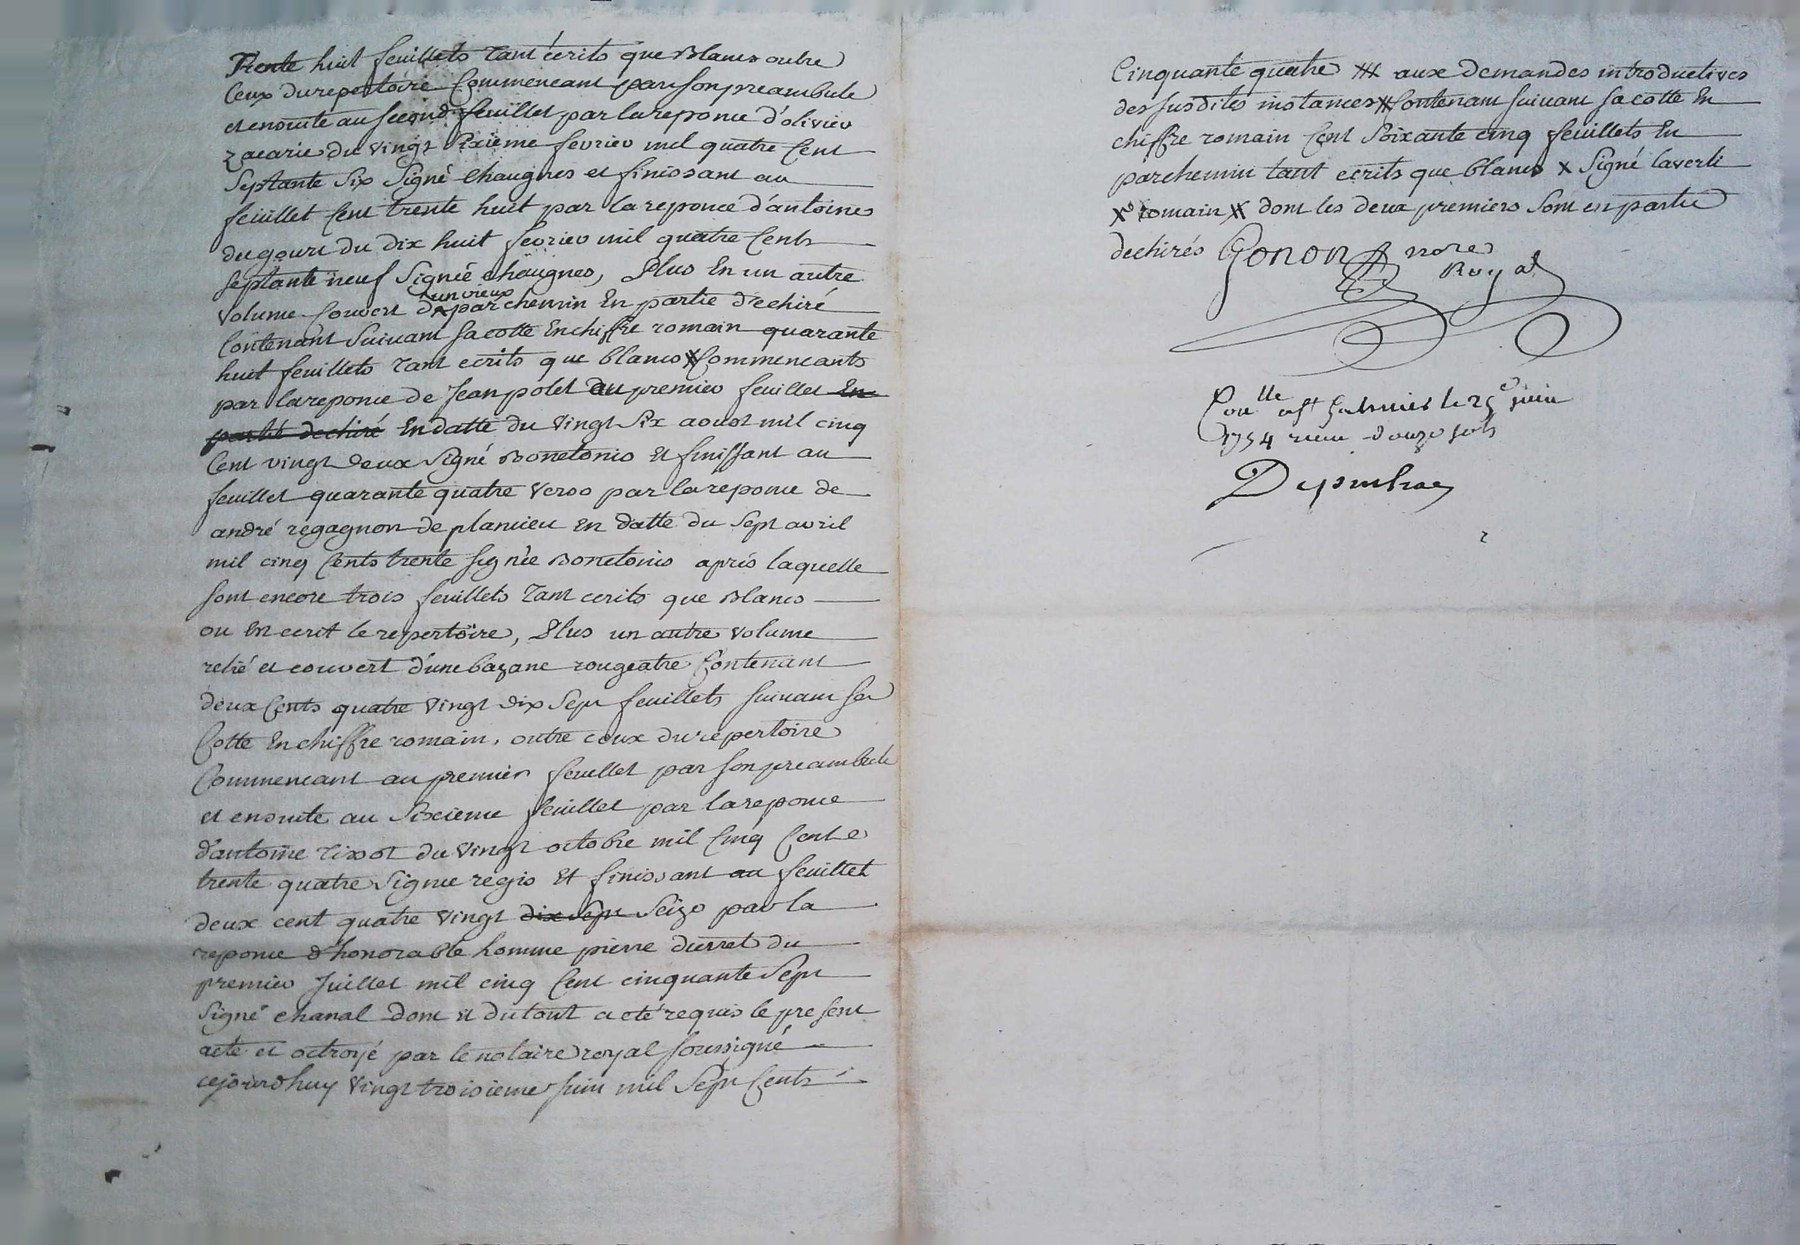 Trente huit feuillets tant écrits que Blancs outre
Ceux du repertoire Commencant par son preambule
et ensuite au second feuillet par la reponce d'olivier
zacarie du vingt sixieme fevrier mil quatre Cent
septante six signé Chaugnes et finissant au
feuillet Cent trente huit par la reponce d'antoine
dugourt du dix huit fevrier mil quatre Cents
septante neuf signée Chaugnes, Plus En un autre
volume Couvert d'un vieux parchemin En partie dechiré
Contenant suivant sa cotte En chiffre romain quarante
huit feuillets tant ecrits que blancs X Commencants
par la reponce de Jean polet au premier feuillet En
partie dechiré En datte du vingt six aoust mil cinq
Cent vingt deux signé Bonetonis Et finissant au
feuillet quarante quatre verso par la reponce de
andré regagnon de plancieu En datte du sept avril
mil cinq Cents trente signée Bonetonis après laquelle
sont encore trois feuillets tant ecrits que Blancs
ou En ecrit le repertoire, Plus un autre volume
relié et couvert d'une bazane rougeatre Contenant
deux Cents quatre vingt dix sept feuillets suivant sa
Cotte En chiffre romain, outre ceux du repertoire
Commencant au premier feuillet par son preambule
et ensuite au sixieme feuillet par la reponce
d'antoine tixot du vingt octobre mil Cinq Cent
trente quatre signée regis Et finissant au feuillet
deux cent quatre vingt dix sept seize par la
reponce d'honorable homme pierre durret du
premier Juillet mil cinq Cent cinquante sept
signé Chanal dont et du tout a eté requis le present
acte et octroyé par le notaire royal soussigné
cejourd'huy vingt troisieme juin mil sept Cents
Cinquante quatre XX aux demandes introductives
des susdites instances X Contenant suivant sa cotte En
chiffre romain Cent soixante cinq feuillets En
parchemin tant ecrits que blancs X signé laverli
X romain X dont les deux premiers sont en partie
dechirés Gonon nore
Royal
le 25e juin
1754 douze sols